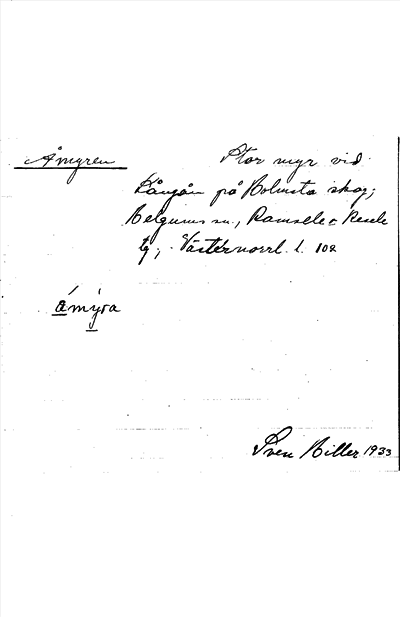 Åmyren
Stor myr vid
Långån på Holmsta skog;
Helgums sn., Ramsele o Resele
tg; Västernorrl. l. 102
åmýra
Sven Hiller 1933